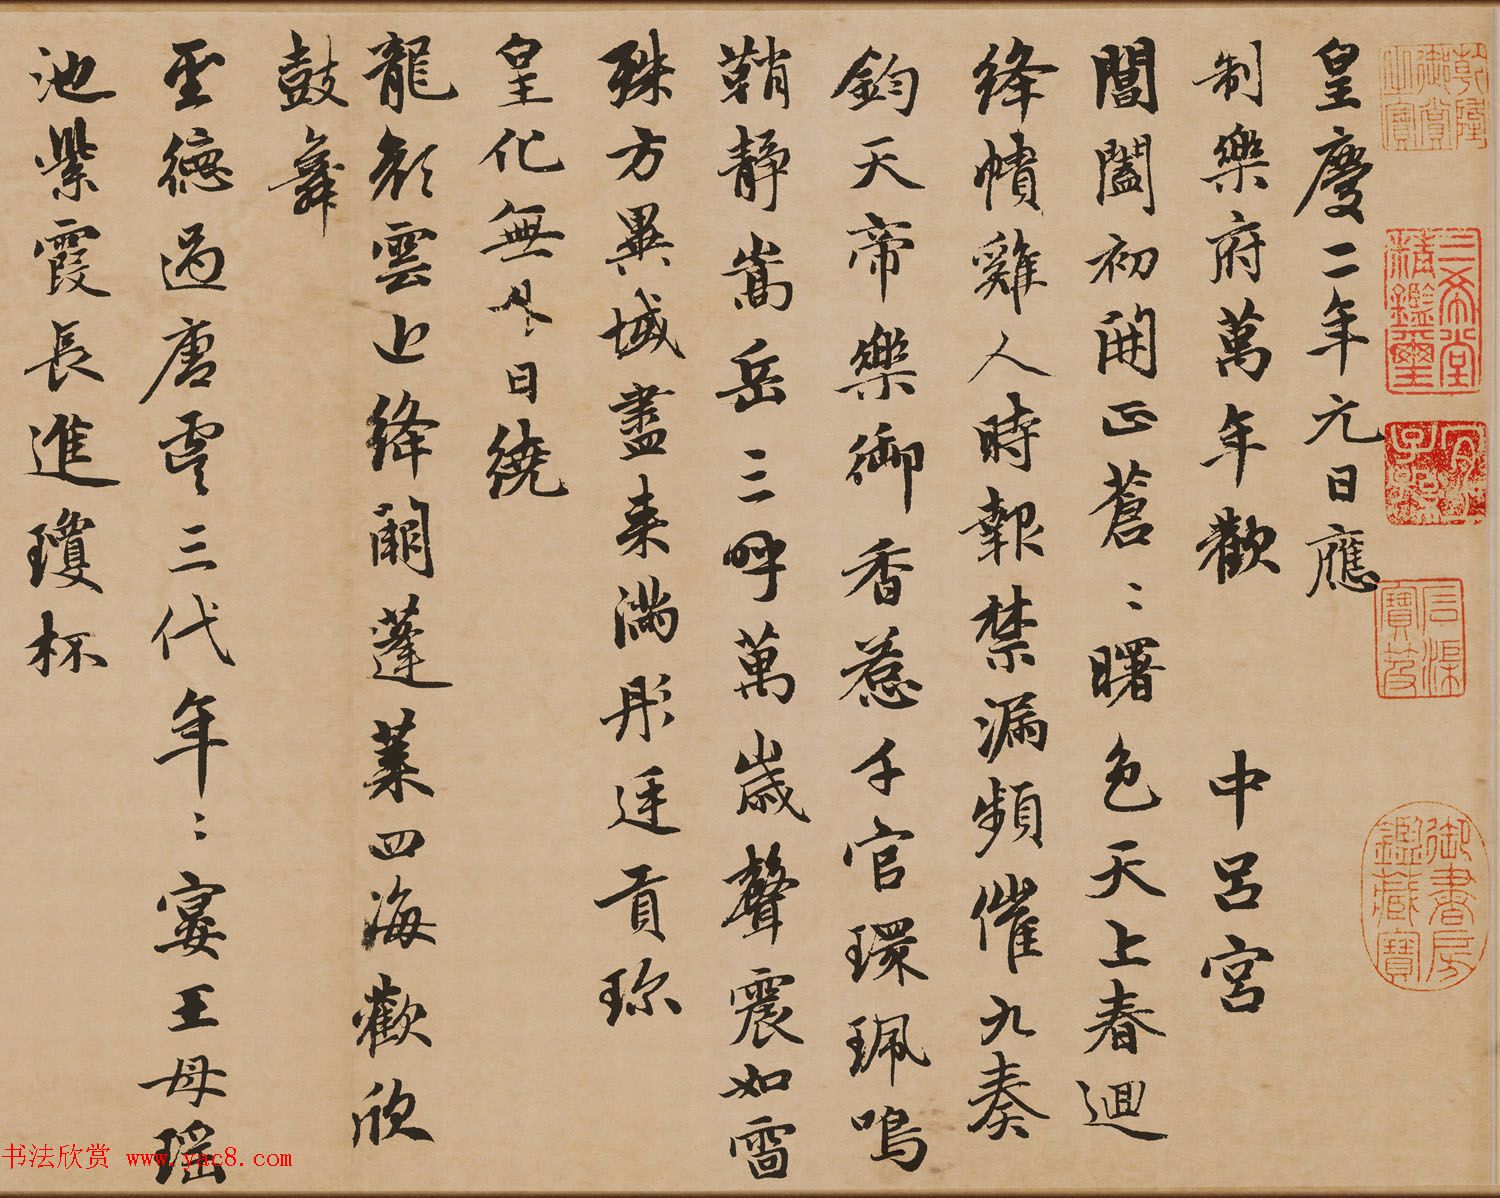 皇慶二年元日應
制樂府萬年歡　中呂宮
閶闔初開正蒼〻曙色天上春迴
絳幘雞人時報禁漏頻催九奏
鈞天帝樂御香惹千官環珮鳴
鞘靜嵩岳三呼萬歲聲震如雷
殊方異域盡來滿彤廷貢珍
皇化無外日繞
龍顏雲近絳闕蓬萊四海歡欣
鼓舞
聖德過唐虞三代年〻宴王母瑤
池紫霞長進瓊杯
乾隆御賞之寶
三希堂精鑑璽
宜子孫
御書房鑑藏寶
书法欣赏 www.yac8.com